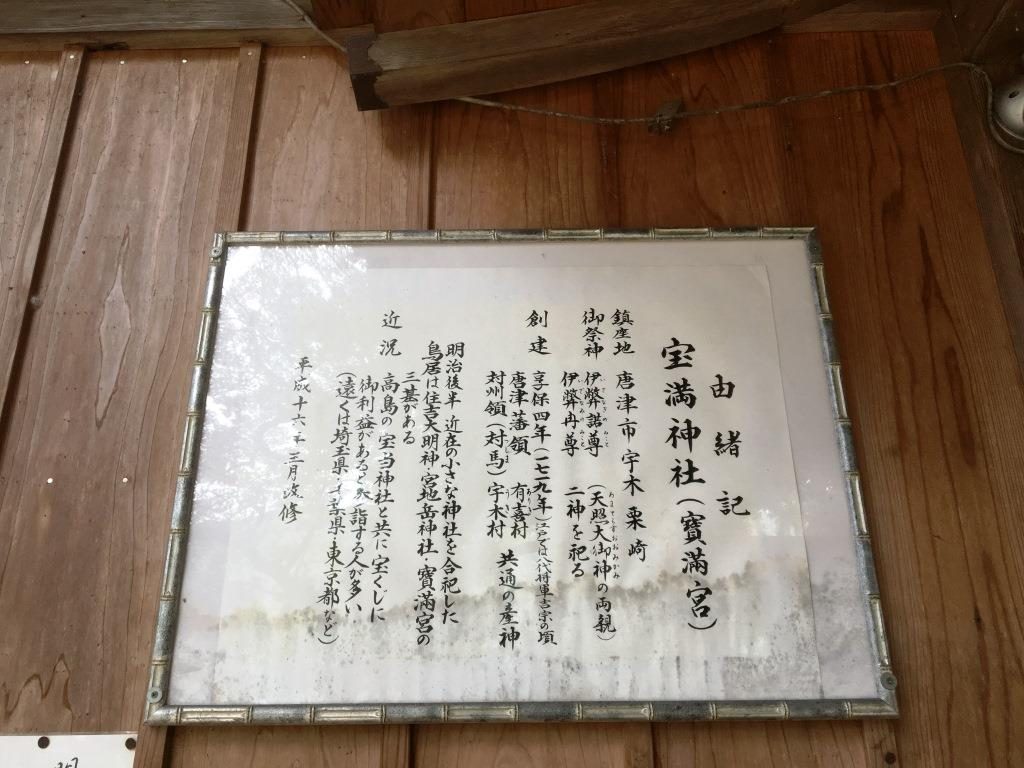 由緒記
宝満神社(寶満宮)
鎮座地 唐津市宇木栗崎
御祭神 伊弊諾尊(天照大御神の両親)
伊弊冉尊 二神を祀る
創建 享保四年(一七一九年)江戸では八代将軍吉宗の頃
唐津藩領 有喜村
対州領(対馬)宇木村 共通の産神
明治後半 近在の小さな神社を合祀した
鳥居は住吉大明神 宮地岳神社 寶満宮の
三基がある
近況 高島の宝当神社と共に宝くじに
御利益があると参詣する人が多い
(遠くは埼玉県 千葉県 東京都など)
平成十六年三月改修